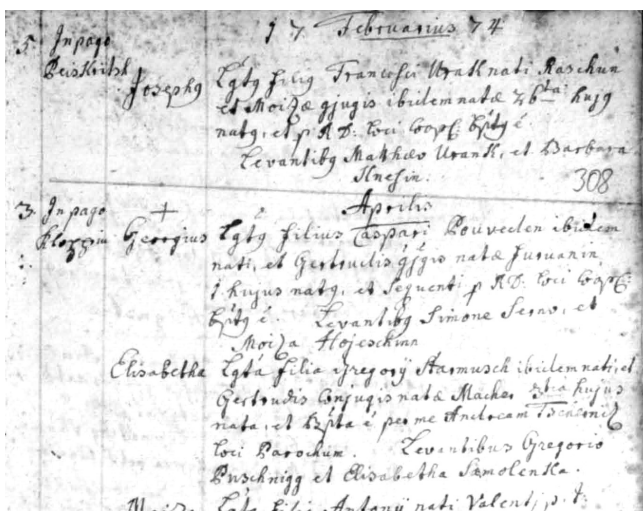 17 Februarius 74
5. In pago
Peiskritsh
Josephg Lgtg filig Francisci Urak nati Raschun
et Moizæ gjugis ibidem natæ hujg
natg, et p R D: loci Coop: bptg é.
Levantibg Mathæo Urank, et Barbara
Knesin.
308
Aprilis
3. In pago
Georgius Lgtg filius Caspari Pouveden ibidem
nati, et Gertrudis gjgis natæ Juruanin
1 hujus natg, et sequenti p R D: loci Coop:
bptg é. Levantibg Simone Serno, et
Moiza Hojeschinn
Elisabetha Lgta filia Gregorÿ Starmusch ibidem nati, et
Gertrudis Conjugis natæ Macher hujus
nata, et bpta é per me Andream
loci Parochum. Levantibus Gregorio
Puschnigg et Elisabetha Samolenka.
Lgta filia Antonÿ nati Valent, p. t.